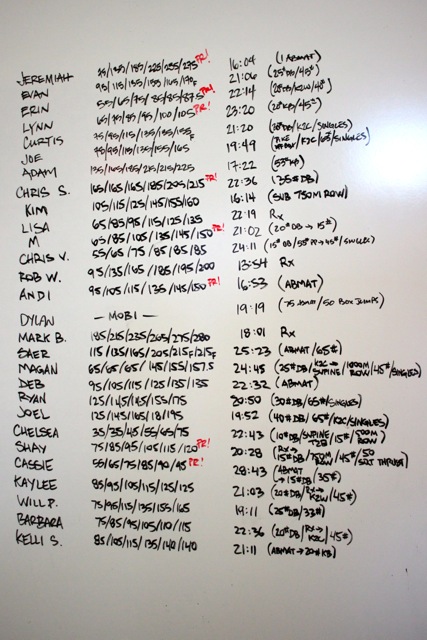 JEREMIAH /135/185/225/235/235 PR! 16:04 (1 ABMAT)
EVAN 95/115/135/155/165/170 21:06 (25# DB/45#)
ERIN 55/65/75/85/85/87.5 PR! 22:14
LYNN 65/75/85/95/100/105 PR! 23:20
CURTIS 75/95/115/135/155/155 21:20 (/K2C/SINGLES)
JOE /95/115/135/155/165 19:49 (/K2C/65/SINGLES)
ADAM 135/165/185/215/215/225 17:22
CHRIS S. 165/165/165/185/205/215 PR! 22:36 (35# DB)
KIM 105/115/125/145/155/160 16:14 (SUB 750M ROW)
LISA 65/85/95/115/125/135 22:19 Rx
M 65/85/105/135/145/150 PR! 21:02 (20# DB → 15#)
CHRIS V. 55/65/75/85/85/85 24:11 (15# DB/)
ROB W. 95/135/165/185/195/200 13:54 Rx
ANDI 95/105/115/135/145/150 PR! 16:53 (ABMAT)
DYLAN — MOBI — 19:19 (75 ABMAT/50 BOX JUMPS)
MARK B. 185/215/235/265/275/280 18:01 Rx
SAER 115/135/165/205/215F/215F 25:23 (ABMAT/65#)
MAGAN 65/65/65/145/155/157.5 24:45 (25# DB/K2C → SUPINE/1000M ROW/45#/SINGLES)
DEB 95/105/115/125/135/135 22:32 (ABMAT)
RYAN 125/145/145/155/175 20:50 (30# DB/65#/SINGLES)
JOEL 125/145/165/18/195 19:52 (40# DB/65#/K2C/SINGLES)
CHELSEA 35/35/45/55/65/75 22:43 (10# DB/SUPINE T2B/15#/500M ROW)
SHAY 75/85/95/105/115/120 PR! 20:28 (Rx → 15# DB/750M ROW/45#/50 SQT THRUST)
CASSIE 55/65/75/85/90/95 PR! 28:43 (ABMAT → 15# DB/35#)
KAYLEE 85/95/105/115/125/125 21:03 (20# DB/Rx → /45#)
WILL P. 75/95/115/135/155/165 19:11 (25# DB/33#)
BARBARA 75/85/95/105/110/115 22:36 (20# DB/Rx → K2C/45#)
KELLI S. 85/105/115/135/140/140 21:11 (ABMAT → 20# KB)